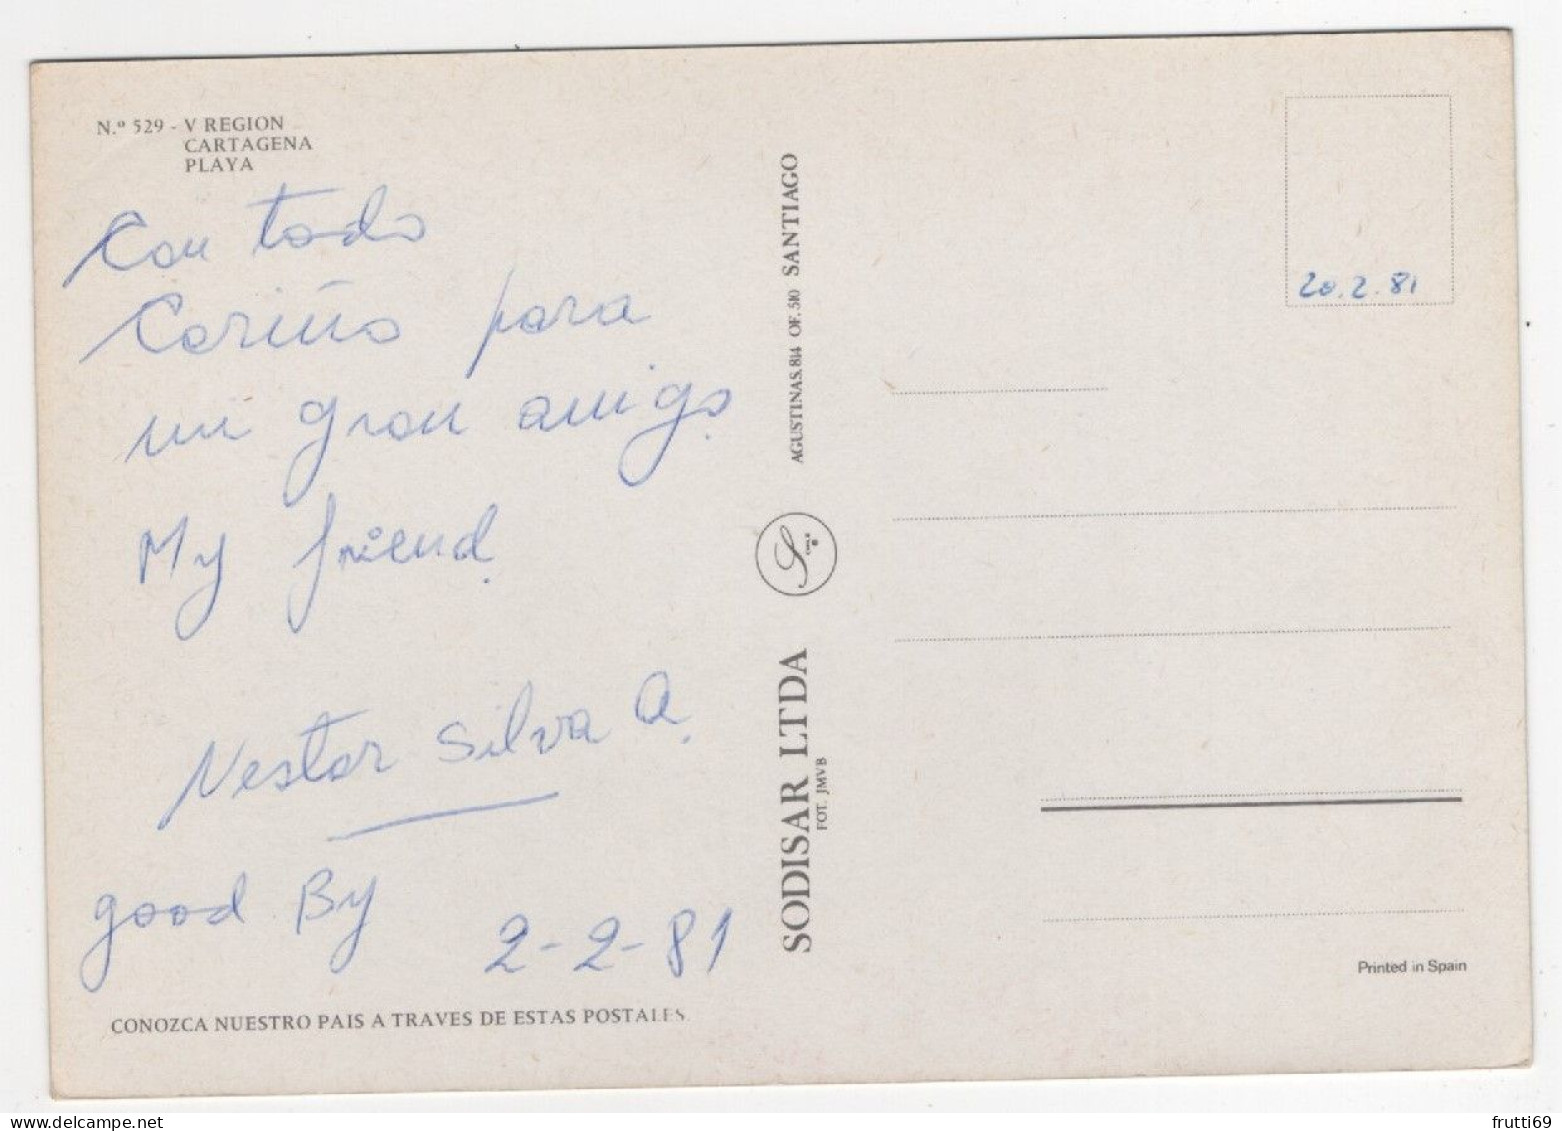 N.º 529 - V REGION
CARTAGENA
PLAYA
Con todo
Cariño para
mi gran amigo.
My friend.
Nestor Silva A.
good By
2-2-81
CONOZCA NUESTRO PAIS A TRAVES DE ESTAS POSTALES.
AGUSTINAS. 814 OF. 510 SANTIAGO
S
CHILE
SODISAR LTDA
FOT. JMVB
20.2.81
Printed in Spain
delcampe.net
frutti69